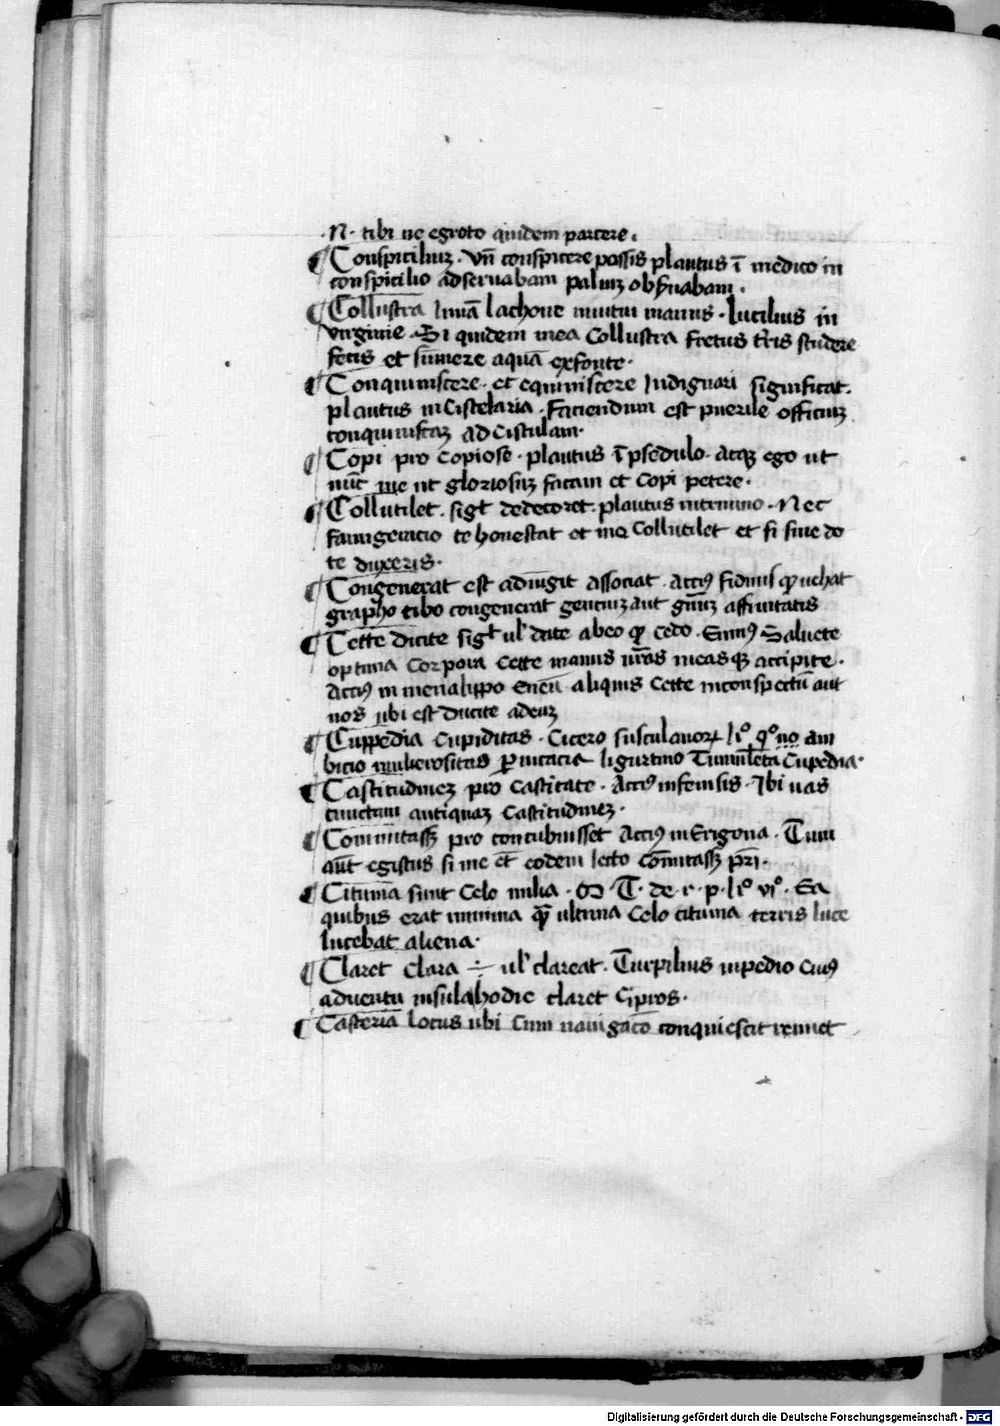 .N. tibi ne egroto quidem parcere.
¶ Conspiciliuꝫ. vn̄ conspicere possis plautus ī medico in
conspicilio adseruabam paliuꝫ obſ̄uabam.
¶ Collustra lachone manus. Lucilius in
virginie. Si quidem mea Collustra fretus tr̄is studere
fetis et sumere aquā exfonte.
¶ Conquiniscere. et equiniscere Indignari significat.
plautus in Cistelaria. Faciendum est puerile officiuꝫ
conquiniscaꝫ ad Cistulam.
¶ Copi pro copiose. plautus ī psedulo. atqꝫ ego ut
nūc me ut gloriosuꝫ faciam et Copi petere.
¶ Collutilet. sigt̄ dedecoret. plautus . Nec
te honestat et me Collutilet et si sine do
te duxeris.
¶ Congenerat est adiūgit associat. Accī
grapho tibo congenerat gentiuꝫ aut gn̄uꝫ affinitatis
¶ Cette dicite sigt̄ ul' date abeo qd' cedo. Enni9 Saluete
optima Corpora Cette manus ur̄as measqꝫ accipite.
Acci9 in menalippo aliquis Cette inconspectū aut
nos ubi est Ducite adeuꝫ
¶ Cuppedia Cupiditas. Cicero tusculanoꝝ li° q°no am
bicio mulierositas ligurtino Cupedia.
¶ Castitudineꝫ pro Castitate. Acci9 . Ibi uas
cunctam antiquaꝫ Castitudineꝫ.
¶ Commitasꝫ pro concubuisset Acci9 in Erigona. Tum
aūt egistus si me et eodem lecto Com̄itasꝫ pr̄i.
¶ Cituma sunt Celo milia. M. T. de. r. p. li° vi°. Ea
quibus erat minima q̄ ultima Celo cituma terris luce
lucebat aliena.
¶ Claret Clara ÷ ul' clareat. Turpilius inpedio Cui9
aduentu insula hodie claret Cipros.
¶ Casteriā Locus ubi Cum nauigacō conquiescit